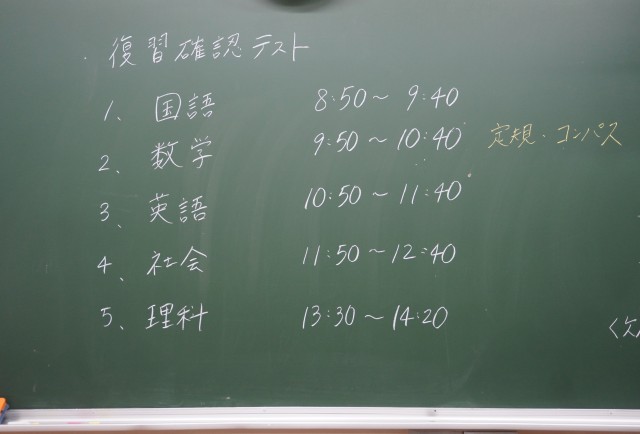 ・復習確認テスト
1、国語 8:50～9:40
2、数学 9:50～10:40 定規・コンパス
3、英語 10:50～11:40
4、社会 11:50～12:40
5、理科 13:30～14:20